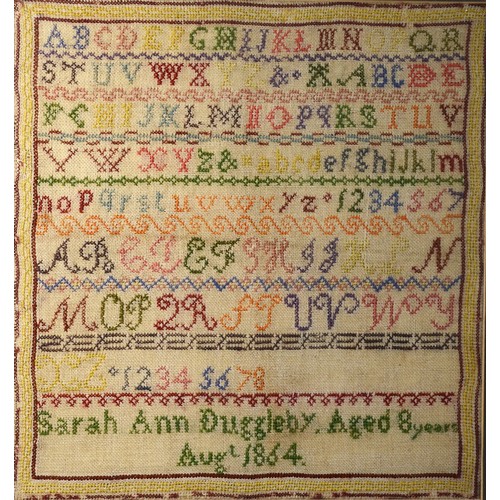 ABCDEFGHIJKLMNOPQR
STUVWXYZ&ABCDE
FGHIJKLMNOPQRSTUV
VWXYZ&abcdefghijklm
nopqrstuvwxyz1234567
ABCDEFGHIJKLN
MOPQRSTUVWY
XZ12345678
Sarah Ann Duggleby, Aged 8 years
Augt 1864.